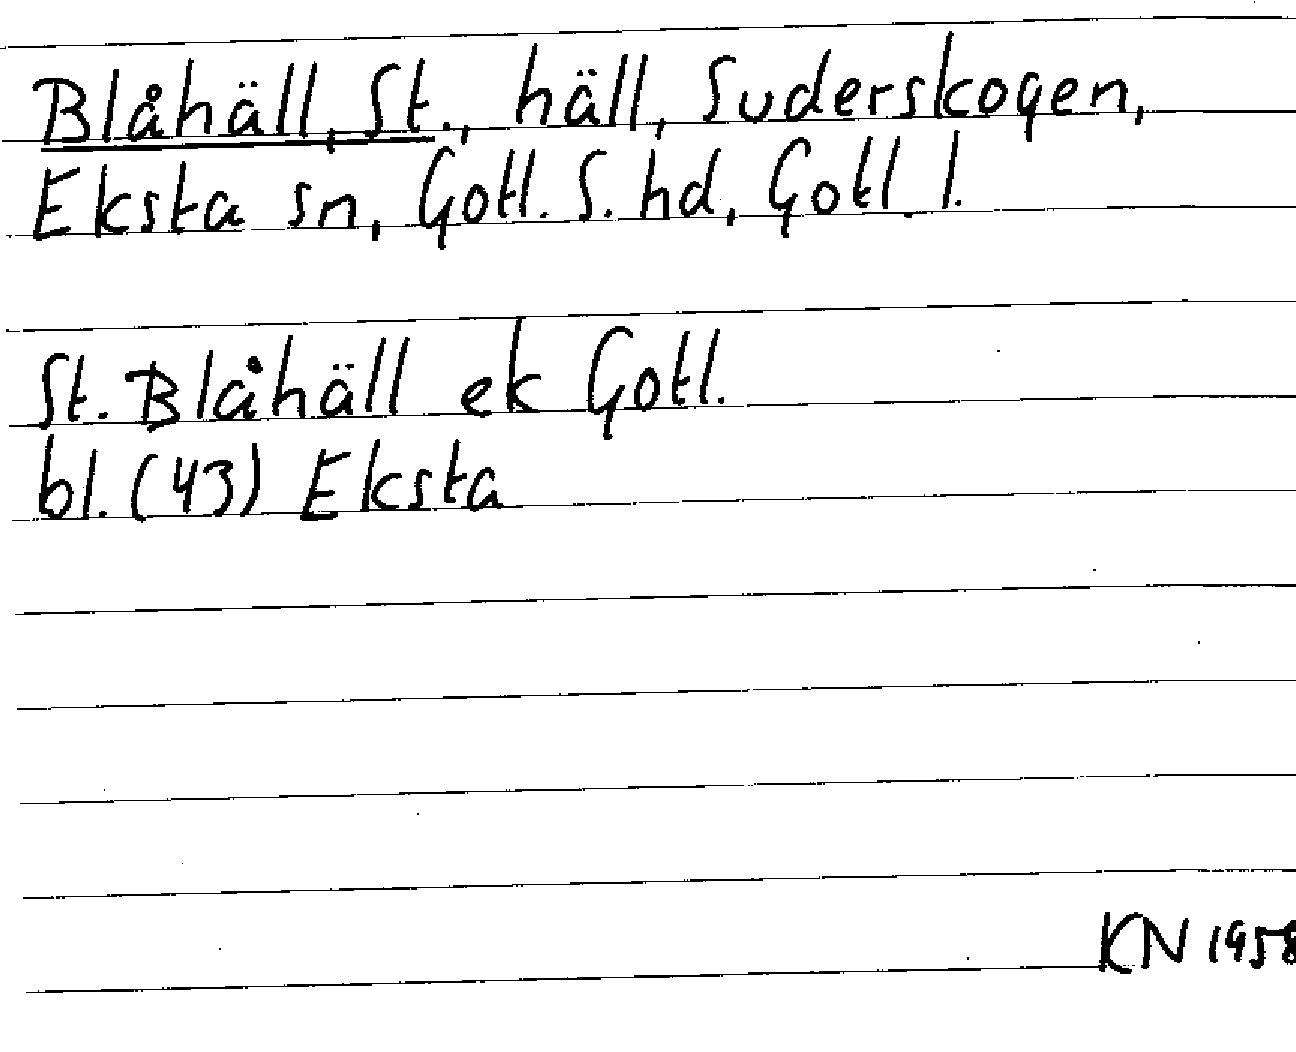 Blåhäll, St., häll, Suderskogen,
Eksta sn, Gotl. S. hd, Gotl. l.
St. Blåhäll ek Gotl.
bl. (43) Eksta
KN 1958